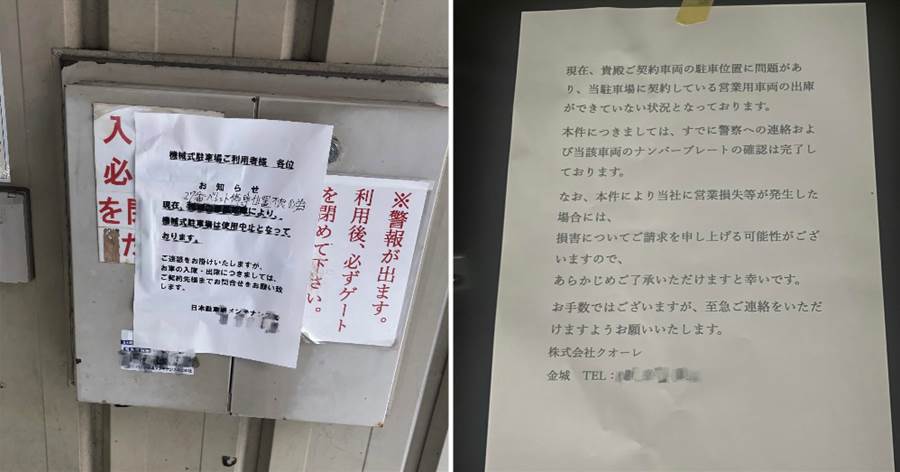 入
必
を閉
機械式駐車場ご利用者様 各位
お知らせ
27番パレット
現在、により、
機械式駐車場は使用中止となって
おります。
ご迷惑をお掛けいたしますが、
お車の入庫・出庫につきましては、
ご契約先様までお問合せをお願い致
します。
日本駐車場メンテナンス
※警報が出ます。
利用後、必ずゲート
を閉めて下さい。
現在、貴殿ご契約車両の駐車位置に問題があ
り、当駐車場に契約している営業用車両の出庫
ができていない状況となっております。
本件につきましては、すでに警察への連絡およ
び当該車両のナンバープレートの確認は完了し
ております。
なお、本件により当社に営業損失等が発生した
場合には、
損害についてご請求を申し上げる可能性がござ
いますので、
あらかじめご了承いただけますと幸いです。
お手数ではございますが、至急ご連絡をいただ
けますようお願いいたします。
株式会社クオーレ
金城 TEL：